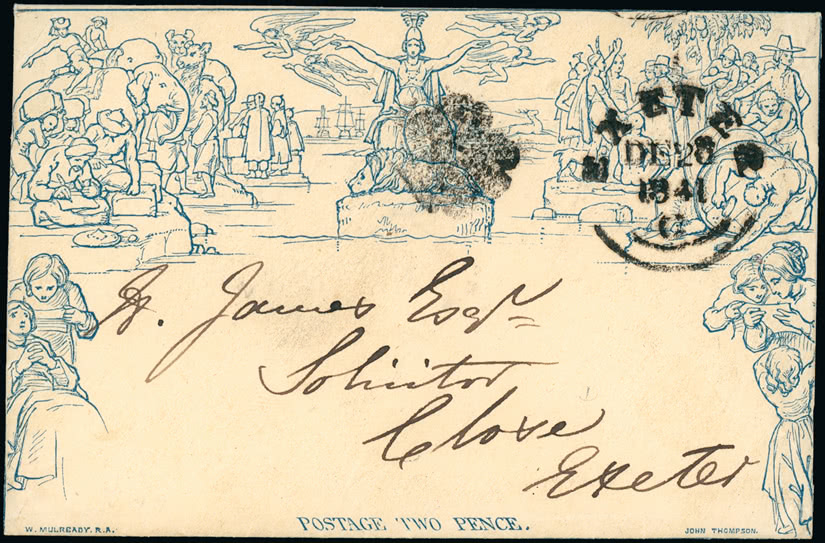 EXETER
DE 28
1841
C
H. James Esqr
Solicitor
Close
Exeter
POSTAGE TWO PENCE.
W. MULREADY. R.A.
JOHN THOMPSON.